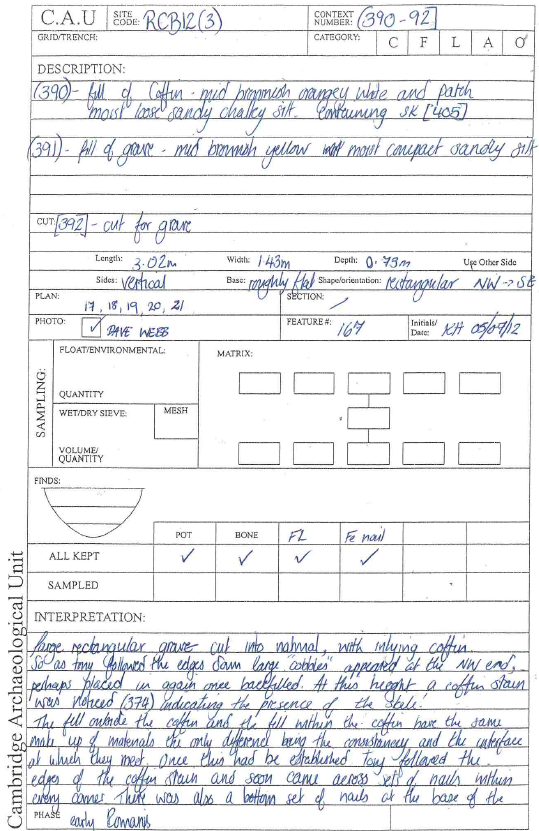 C.A.U
SITE CODE: RCB12(3)
CONTEXT NUMBER: (390-92]
GRID/TRENCH:
CATEGORY: C F L A O
DESCRIPTION:
(390) - fill of Coffin - mid brownish orangey white and patch
moist loose sandy chalky silt. Containing SK [405]
(391) - fill of grave - mid brownish yellow moist compact sandy silt
CUT: [392] - cut for grave
Length: 3.02m Width: 1.43m Depth: 0.73m Use Other Side
Sides: vertical Base: roughly flat Shape/orientation: rectangular NW -> SE
PLAN: 17, 18, 19, 20, 21
SECTION: /
PHOTO: ✓ DAVE WEBB
FEATURE #: 167
Initials/ Date: KH 05/09/12
SAMPLING:
FLOAT/ENVIRONMENTAL:
QUANTITY
WET/DRY SIEVE: MESH
VOLUME/ QUANTITY
MATRIX:
FINDS:
POT BONE FL Fe nail
ALL KEPT ✓ ✓ ✓ ✓
SAMPLED
INTERPRETATION:
large rectangular grave cut into natural, with inlying coffin.
So as Tony followed the edges down large "cobbles" appeared at the NW end,
perhaps placed in again once backfilled. At this height a coffin stain
was noticed (374) indicating the presence of the
The fill outside the coffin and the fill within the coffin have the same
make up of materials the only difference being the and the interface
at which they meet. Once this had been established Tony followed the
edges of the coffin stain and soon came across sets of nails within
every corner. There was also a bottom set of nails at the base of the
PHASE early Romans
Cambridge Archaeological Unit